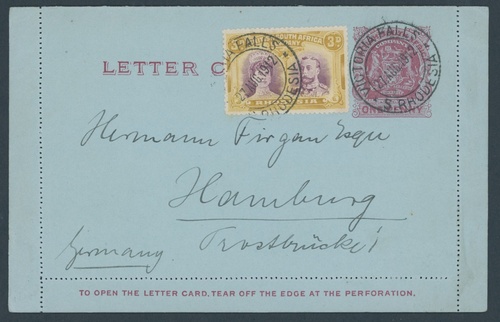 LETTER C
SOUTH AFRICA
3d
RHODESIA
VICTORIA FALLS
S. RHODESIA
ONE PENNY
Hermann Firgau Esqu
Hamburg
Germany Trostbrücke 1
TO OPEN THE LETTER CARD, TEAR OFF THE EDGE AT THE PERFORATION.